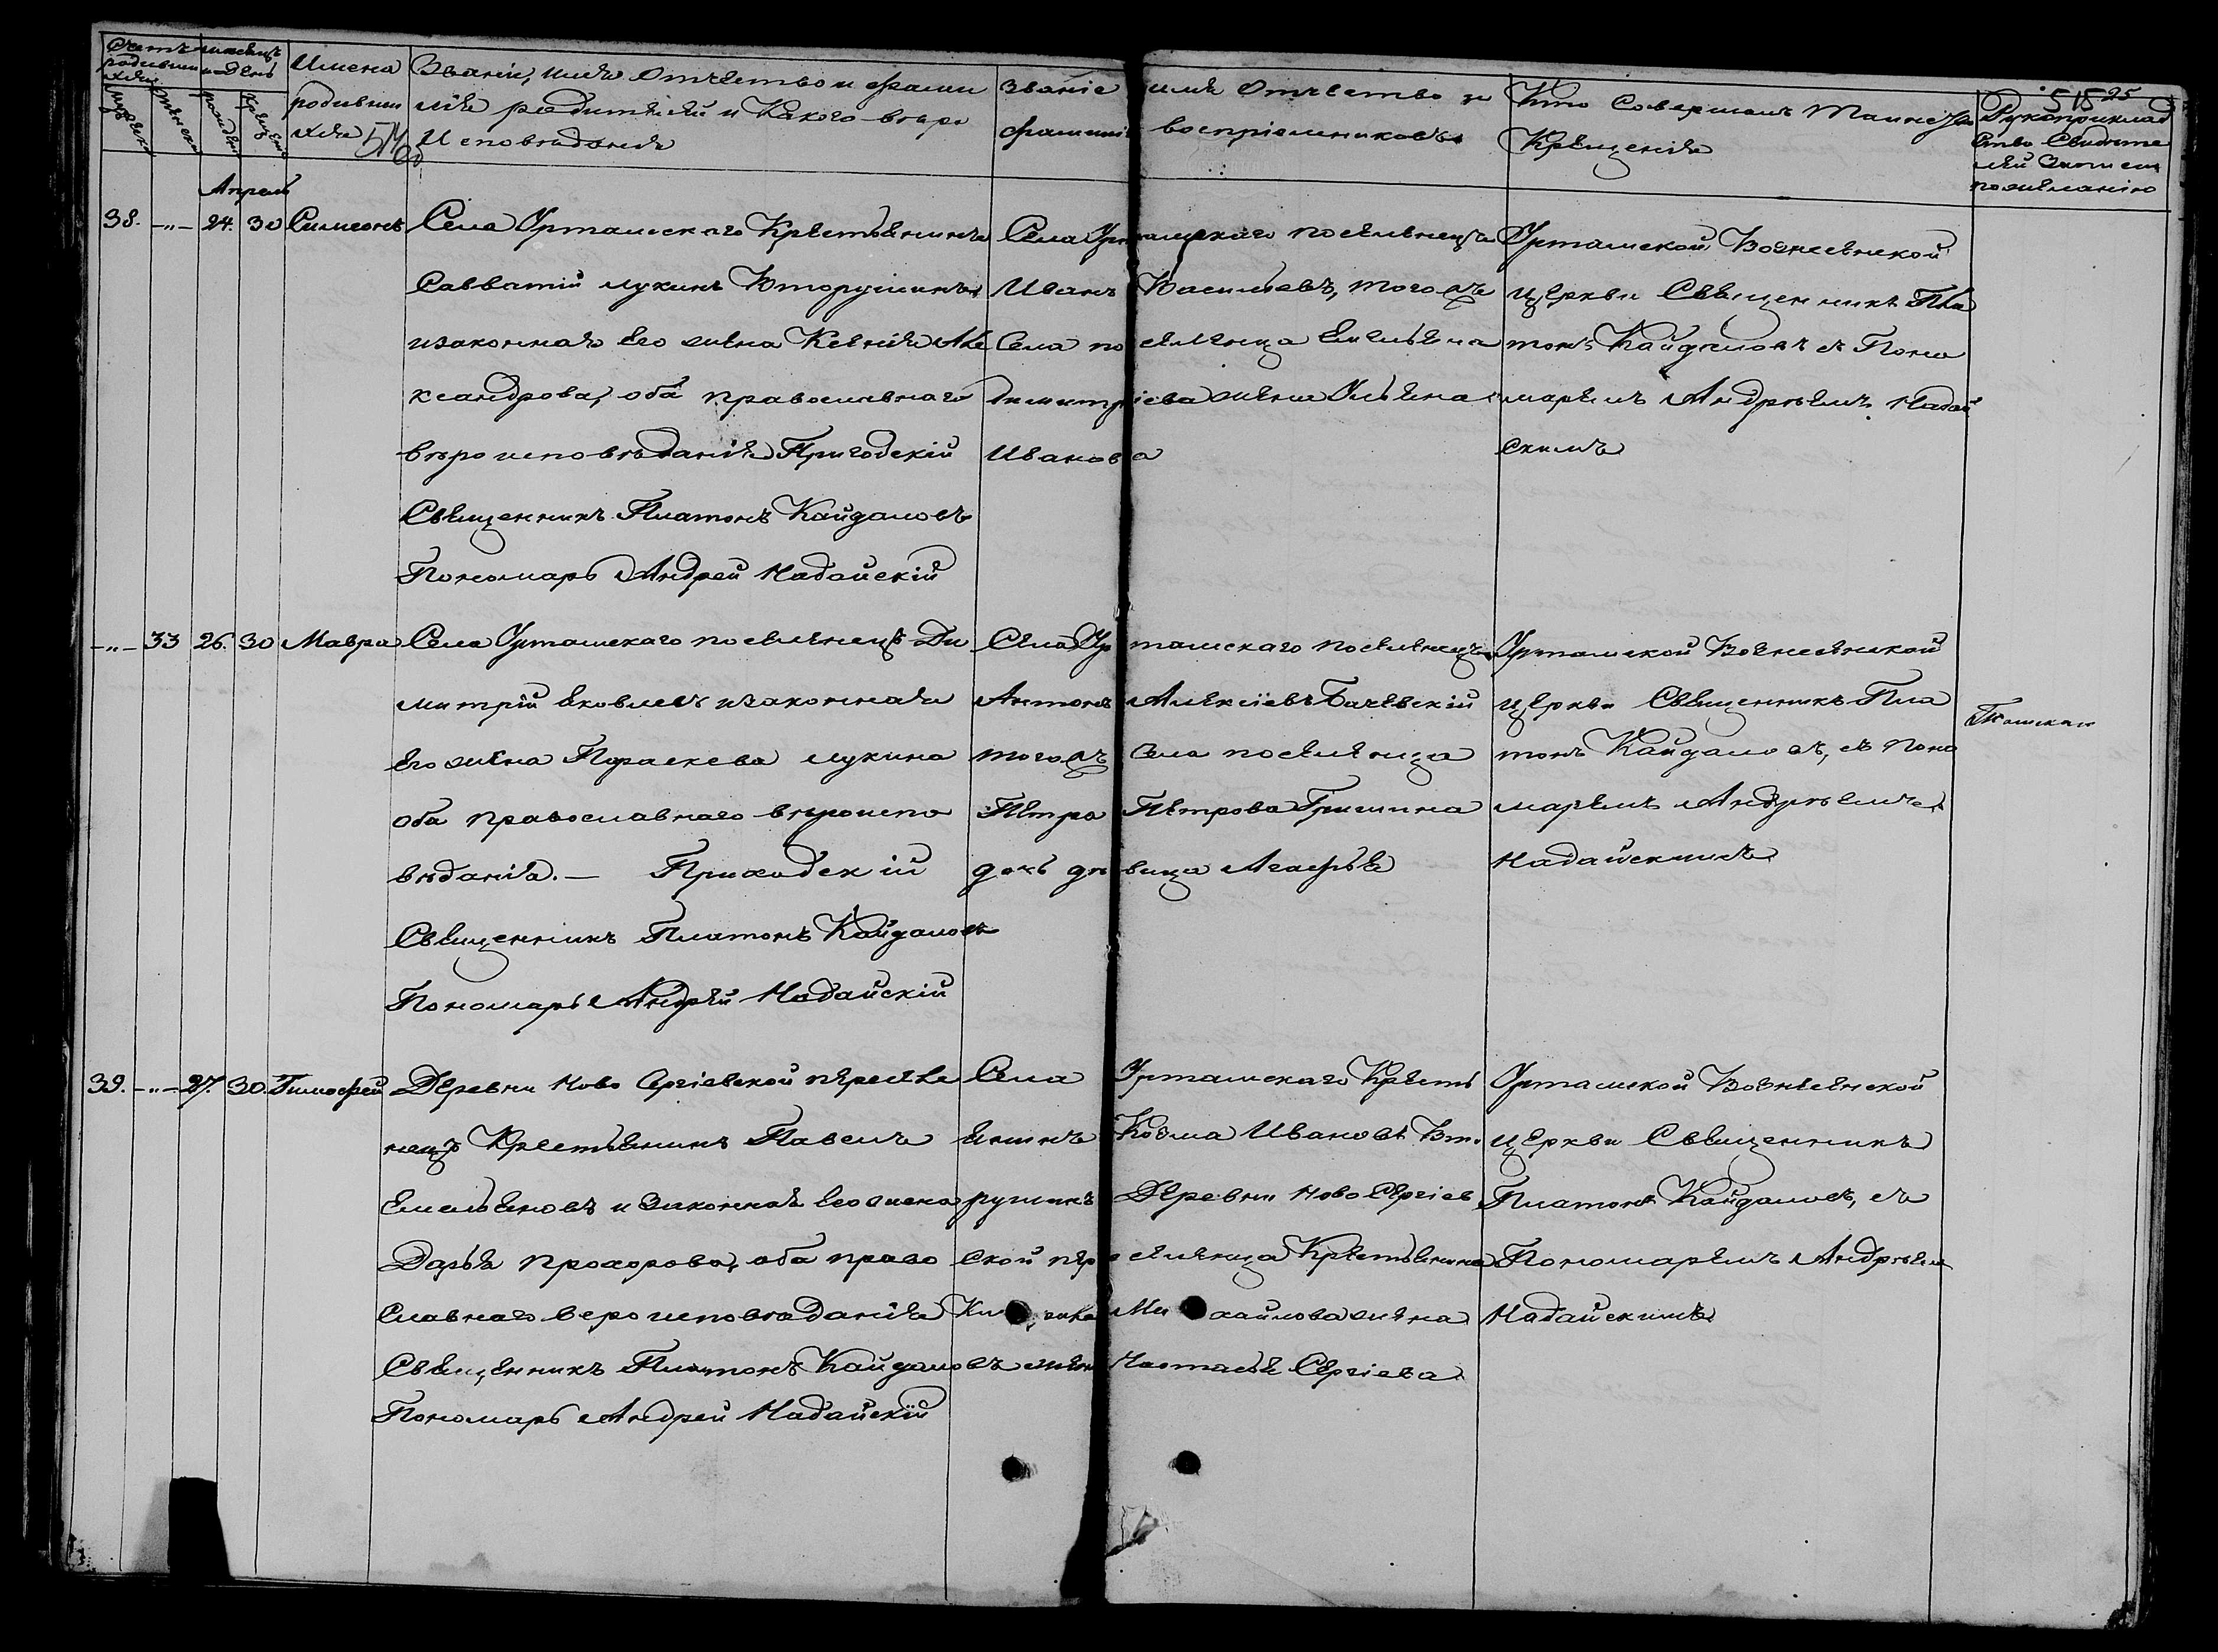 Счетъ
родивши
хся
мѣсяцъ
и день
Имена
родивши
хся
Званіе, имя отчество и фами
лія родителей и Какого вѣро
Исповѣданія
Званіе имя Отчество и
фамилія воспріемниковъ
Кто Совершалъ Таинство
Крещенія
515 25
Рукоприклад
ство Свидѣте
лей Записи
по желанію
Апрель
38. -"- 24. 30 Симеонъ
Села Уртамскаго Крестьянинъ
Савватій Лукинъ Вторушинъ
и законная его жена Ксенія Але
ксандрова, оба православнаго
вѣроисповѣданія Приходскій
Священникъ Платонъ Кайдаловъ
Пономарь Андрей Надайскій
Села Уртамскаго поселенецъ
Иванъ Васильевъ, того жъ
Села поселенца Емельяна
Димитріева жена Ульяна
Иванова
Уртамской Вознесенской
церкви Священникъ Пла
тонъ Кайдаловъ съ Поно
маремъ Андрѣемъ Надай
скимъ
-"- 33 26. 30 Мавра
Села Уртамскаго поселенецъ Ди
митрій Яковлевъ и законная
его жена Параскева Лукина
оба православнаго вѣроиспо
вѣданія. — Приходскій
Священникъ Платонъ Кайдаловъ
Пономарь Андрей Надайскій
Села Уртамскаго поселенецъ
Антонъ Алексіевъ Бачевскій
того жъ Села поселенца
Петра Петрова Гришина
дочь дѣвица Агафья
Уртамской Вознесенской
церкви Священникъ Пла
тонъ Кайдаловъ, съ Поно
маремъ Андрѣемъ
Надайскимъ
39. -"- 27. 30. Тимофей
Деревни Ново Сергіевской пересѣле
нецъ Крестьянинъ Павелъ
Емельяновъ и законная его жена
Дарья Прохорова, оба право
славнаго вероисповѣданія
Священникъ Платонъ Кайдаловъ
Пономарь Андрей Надайскій
Села Уртамскаго Кресть
янинъ Козма Ивановъ Вто
рушинъ Деревни Ново Сергіев
ской переселенца Крестьянина
Михайлова жена
жена Настасья Сергіева
Уртамской Вознесенской
церкви Священникъ
Платонъ Кайдаловъ, съ
Пономаремъ Андрѣем
Надайскимъ